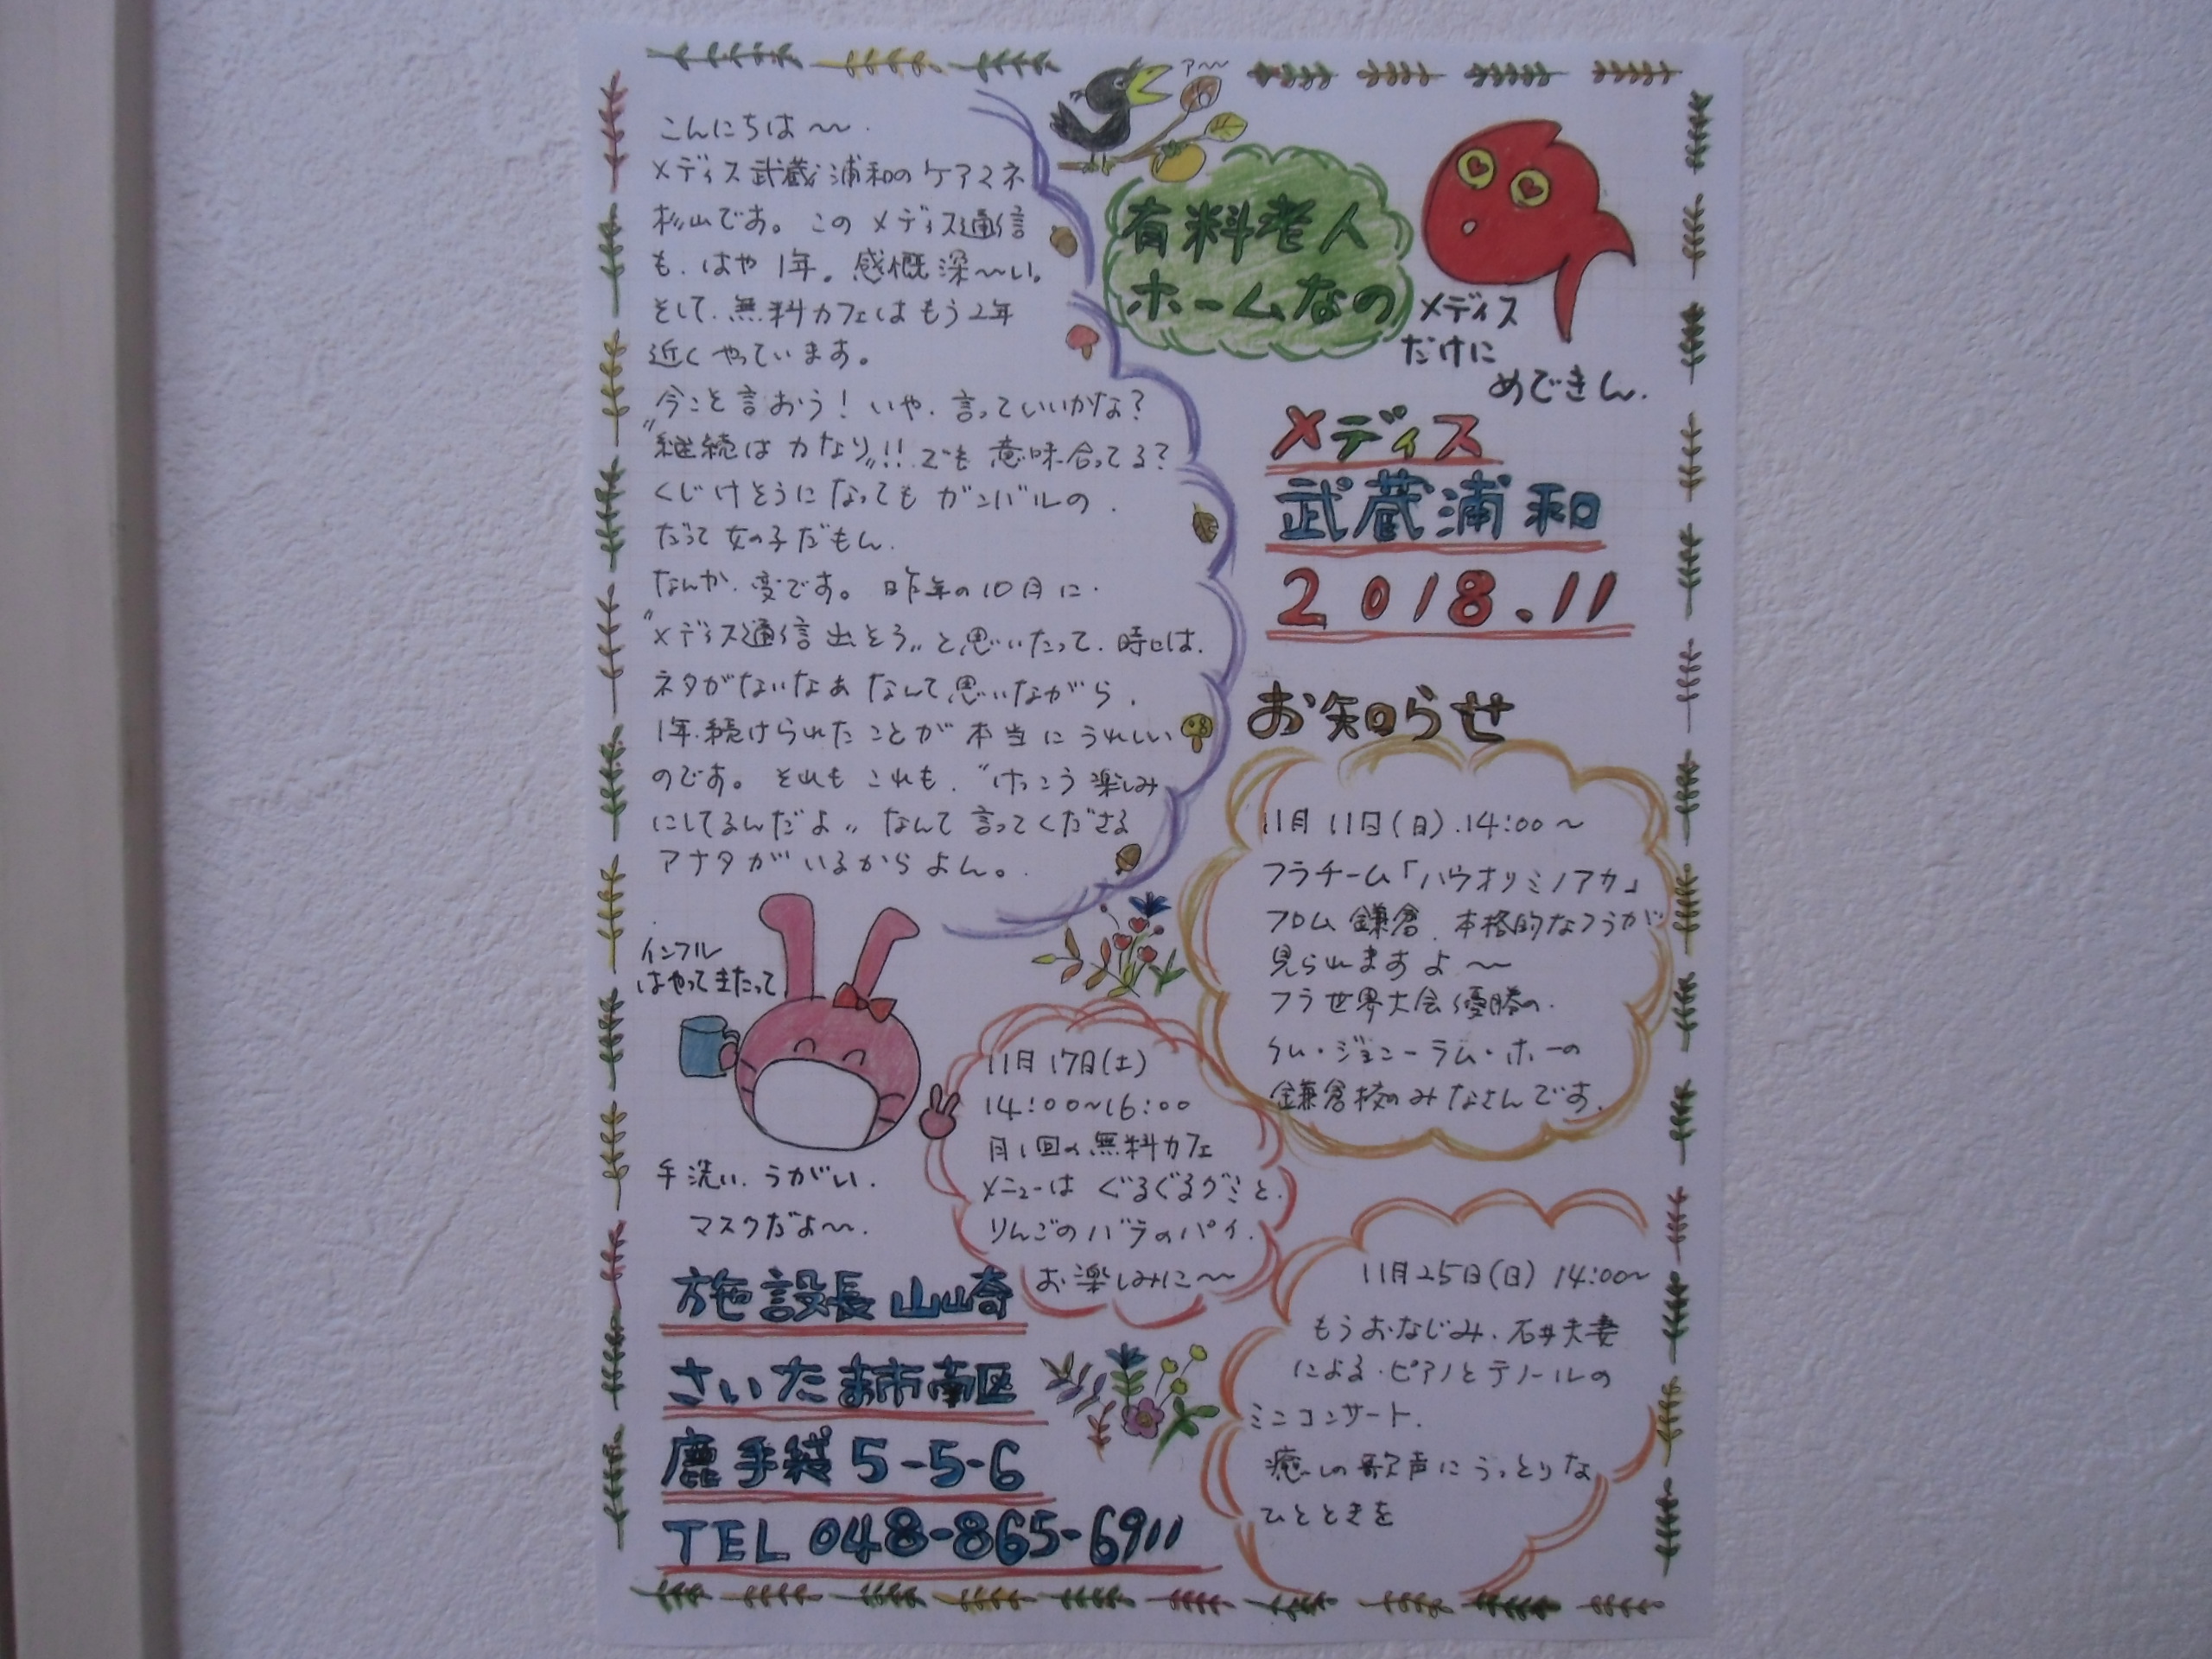 こんにちは〜
メディス武蔵浦和のケアマネ
杉山です。このメディス通信
も、はや1年。感慨深〜い。
そして、無料カフェはもう2年
近くやっています。
今こそ言おう！いや、言っていいかな？
"継続は力なり"!!でも意味合ってる？
くじけそうになってもガンバルの、
だって女の子だもん、
なんか、変です。昨年の10月に、
"メディス通信出そう"と思いたって、時には、
ネタがないなぁなんて思いながら、
1年続けられたことが本当にうれしい
のです。それもこれも、"けっこう楽しみ
にしてるんだよ"なんて言ってくださる
アナタがいるからよん。
ア〜〜
有料老人
ホームなの
メディス
だけに
めできん.
メディス
武蔵浦和
2018.11
お知らせ
11月11日(日).14:00〜
フラチーム「ハウオリミノアカ」
フロム鎌倉、本格的なフラが
見られますよ〜
フラ世界大会優勝の、
ケム・ジョニーラム・ホーの
鎌倉校のみなさんです.
インフル
はやってきたって
手洗い、うがい、
マスクだよ〜.
11月17日(土)
14:00〜16:00
月1回の無料カフェ
メニューはぐるぐるグミと、
りんごのバラのパイ.
お楽しみに〜
11月25日(日)14:00〜
もうおなじみ、石井夫妻
による・ピアノとテノールの
ミニコンサート.
癒しの歌声にうっとりな
ひとときを
施設長 山崎
さいたま市南区
鹿手袋5-5-6
TEL 048-865-6911